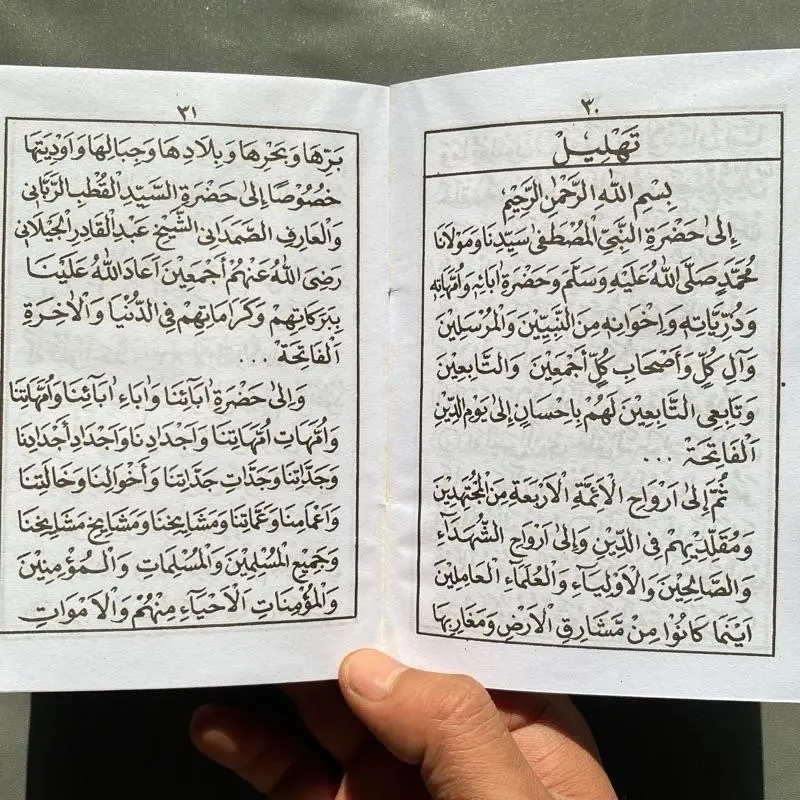 ٣٠
تَهْلِيْلْ
بِسْمِ اللهِ الرَّحْمٰنِ الرَّحِيْمِ
إِلىٰ حَضْرَةِ النَّبِيِّ الْمُصْطَفىٰ سَيِّدِنَا وَمَوْلَانَا
مُحَمَّدٍ صَلَّى اللهُ عَلَيْهِ وَسَلَّمَ وَحَضْرَةِ اٰبَائِهٖ وَاُمَّهَاتِهٖ
وَذُرِّيَّاتِهٖ وَاِخْوَانِهٖ مِنَ النَّبِيِّيْنَ وَالْمُرْسَلِيْنَ
وَآلِ كُلٍّ وَأَصْحَابِ كُلٍّ أَجْمَعِيْنَ وَالتَّابِعِيْنَ
وَتَابِعِى التَّابِعِيْنَ لَهُمْ بِاِحْسَانٍ إِلىٰ يَوْمِ الدِّيْنِ
اَلْفَاتِحَةْ ...
ثُمَّ إِلىٰ اَرْوَاحِ الْاَئِمَّةِ الْاَرْبَعَةِ مِنَ الْمُجْتَهِدِيْنَ
وَمُقَلِّدِيْهِمْ فِى الدِّيْنِ وَإِلىٰ اَرْوَاحِ الشُّهَدَآءِ
وَالصَّالِحِيْنَ وَالْاَوْلِيَآءِ وَالْعُلَمَآءِ الْعَامِلِيْنَ
اَيْنَمَا كَانُوْا مِنْ مَّشَارِقِ الْاَرْضِ وَمَغَارِبِهَا
٣١
بَرِّهَا وَبَحْرِهَا وَبِلَادِهَا وَجِبَالِهَا وَاَوْدِيَتِهَا
خُصُوْصًا إِلىٰ حَضْرَةِ السَّيِّدِ الْقُطْبِ الرَّبَّانِى
وَالْعَارِفِ الصَّمَدَانِى الشَّيْخِ عَبْدِ الْقَادِرِ الْجَيْلَانِى
رَضِىَ اللهُ عَنْهُمْ أَجْمَعِيْنَ اَعَادَ اللهُ عَلَيْنَا
بِبَرَكَاتِهِمْ وَكَرَامَاتِهِمْ فِى الدُّنْيَا وَالْاٰخِرَةِ
اَلْفَاتِحَةْ ...
وَاِلىٰ حَضْرَةِ اٰبَآئِنَا وَاٰبَاءِ اٰبَآئِنَا وَاُمَّهَاتِنَا
وَاُمَّهَاتِ اُمَّهَاتِنَا وَاَجْدَادِنَا وَاَجْدَادِ أَجْدَادِنَا
وَجَدَّاتِنَا وَجَدَّاتِ جَدَّاتِنَا وَأَخْوَالِنَا وَخَالَتِنَا
وَاَعْمَامِنَا وَعَمَّاتِنَا وَمَشَايِخِنَا وَمَشَايِخِ مَشَايِخِنَا
وَجَمِيْعِ الْمُسْلِمِيْنَ وَالْمُسْلِمَاتِ وَالْمُؤْمِنِيْنَ
وَالْمُؤْمِنَاتِ الْاَحْيَآءِ مِنْهُمْ وَالْاَمْوَاتِ